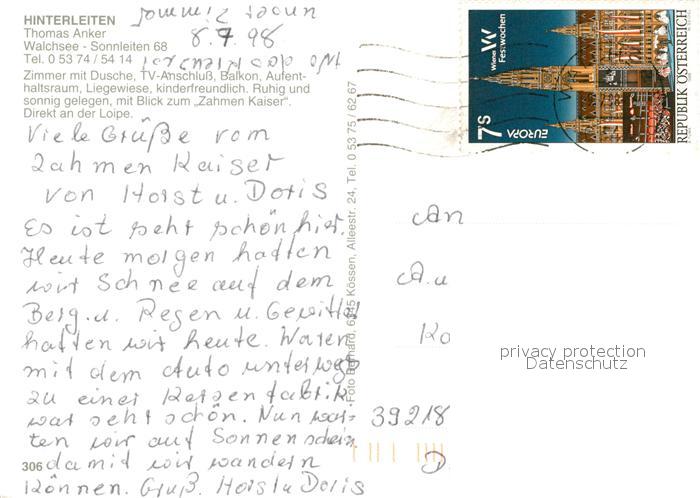 HINTERLEITEN
Thomas Anker
Walchsee - Sonnleiten 68
Tel. 0 53 74 / 54 14
Zimmer mit Dusche, TV-Anschluß, Balkon, Aufent-
haltsraum, Liegewiese, kinderfreundlich. Ruhig und
sonnig gelegen, mit Blick zum „Zahmen Kaiser“.
Direkt an der Loipe.
8.7.98
Viele Grüße vom
Zahmen Kaiser
von Horst u. Doris
Es ist sehr schön hier.
Heute morgen hatten
wir Schnee auf dem
Berg. u. Regen u. Gewitter
hatten wir heute. Waren
mit dem Auto unterwegs
zu einer Kerzenfabrik.
war sehr schön. Nun war-
ten wir auf Sonnenschein
damit wir wandern
können. Gruß. Horst u Doris
306
Foto Bernhard, 6345 Kössen, Alleestr. 24, Tel. 0 53 75 / 62 67
Wiener Festwochen
7 S
EUROPA
REPUBLIK ÖSTERREICH
An
Ko
39218
D
privacy protection
Datenschutz